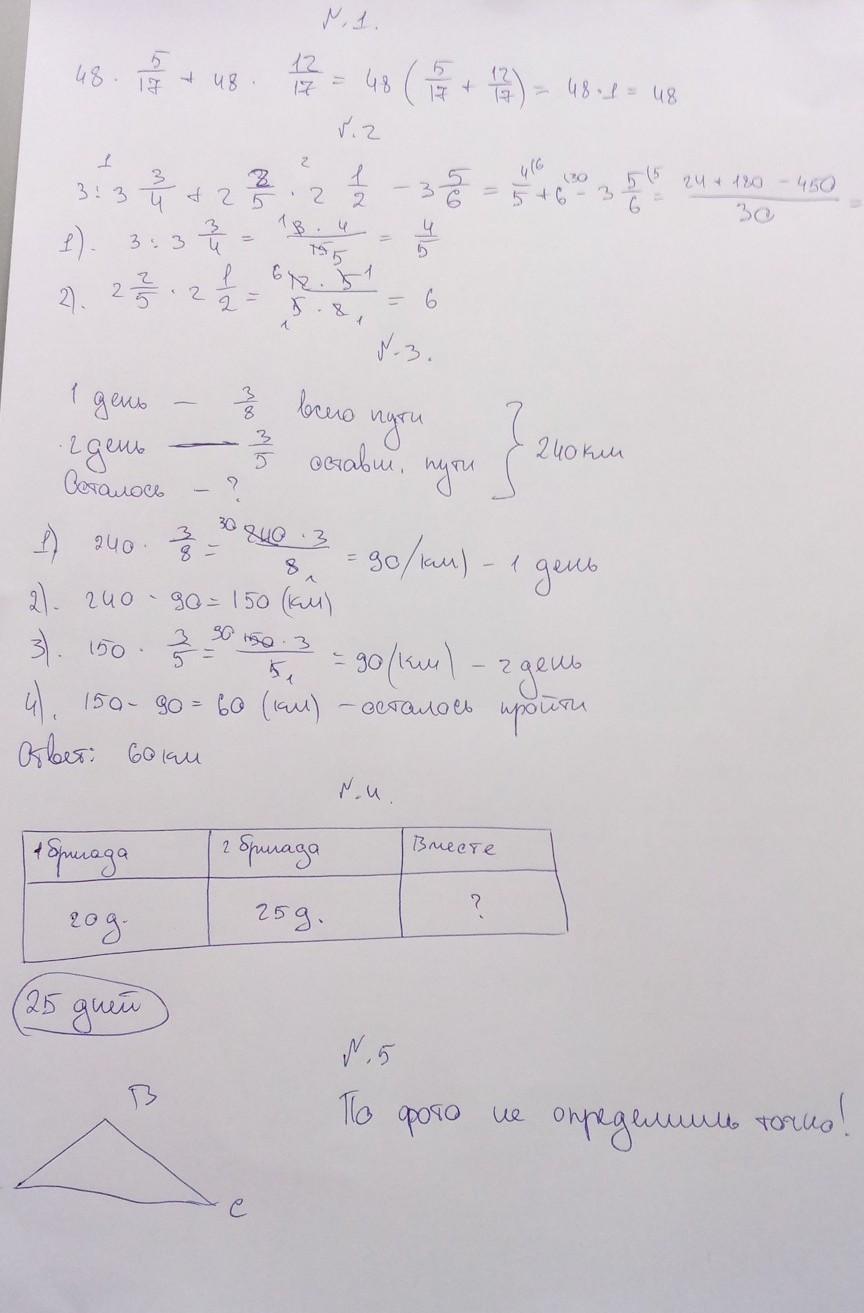 N.1.
48 · 5/17 + 48 · 12/17 = 48 (5/17 + 12/17) = 48·1 = 48
N.2
1 2
3 : 3 3/4 + 2 2/5 · 2 1/2 - 3 5/6 = 4(6/5 + 6(30 - 3 5(5/6 = 24 + 180 - 450/30 =
1). 3 : 3 3/4 = 1 3 · 4/15 5 = 4/5
2). 2 2/5 · 2 1/2 = 6 12 · 5 1/1 5 · 2 1 = 6
N.3.
1 день — 3/8 всего пути
2 день — 3/5 оставш. пути } 240 км
Осталось - ?
1) 240 · 3/8 = 30 240 · 3/8 1 = 90 (км) - 1 день
2). 240 - 90 = 150 (км)
3). 150 · 3/5 = 30 150 · 3/5 1 = 90 (км) - 2 день
4). 150 - 90 = 60 (км) - осталось пройти
Ответ: 60 км
N.4.
1 бригада 2 бригада Вместе
20 д. 25 д. ?
25 дней
N.5
B
По фото не определишь точно!
C